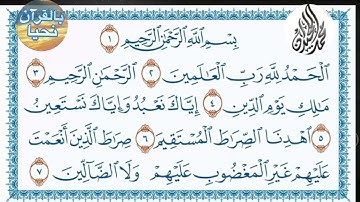 بالقرآن
نحيا
بِسْمِ ٱللَّهِ ٱلرَّحْمَٰنِ ٱلرَّحِيمِ ١
ٱلْحَمْدُ لِلَّهِ رَبِّ ٱلْعَٰلَمِينَ ٢ ٱلرَّحْمَٰنِ ٱلرَّحِيمِ ٣
مَٰلِكِ يَوْمِ ٱلدِّينِ ٤ إِيَّاكَ نَعْبُدُ وَإِيَّاكَ نَسْتَعِينُ
٥ ٱهْدِنَا ٱلصِّرَٰطَ ٱلْمُسْتَقِيمَ ٦ صِرَٰطَ ٱلَّذِينَ أَنْعَمْتَ
عَلَيْهِمْ غَيْرِ ٱلْمَغْضُوبِ عَلَيْهِمْ وَلَا ٱلضَّآلِّينَ ٧